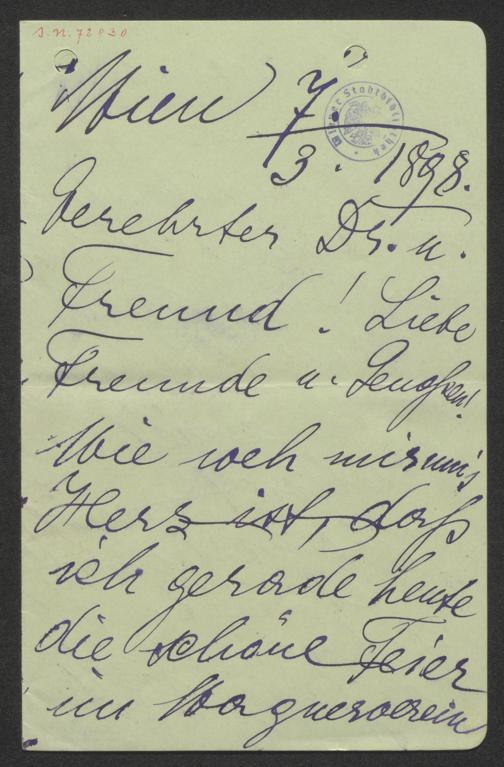 J.N. 72830
Wien 7./3. 1898.
Wiener Stadtbibliothek
Verehrter Dr. u.
Freund! Liebe
Freunde u. Genoßen!
Wie weh mir um's
Herz ist, daß
ich gerade heute
die schöne Feier
im Wagnerverein